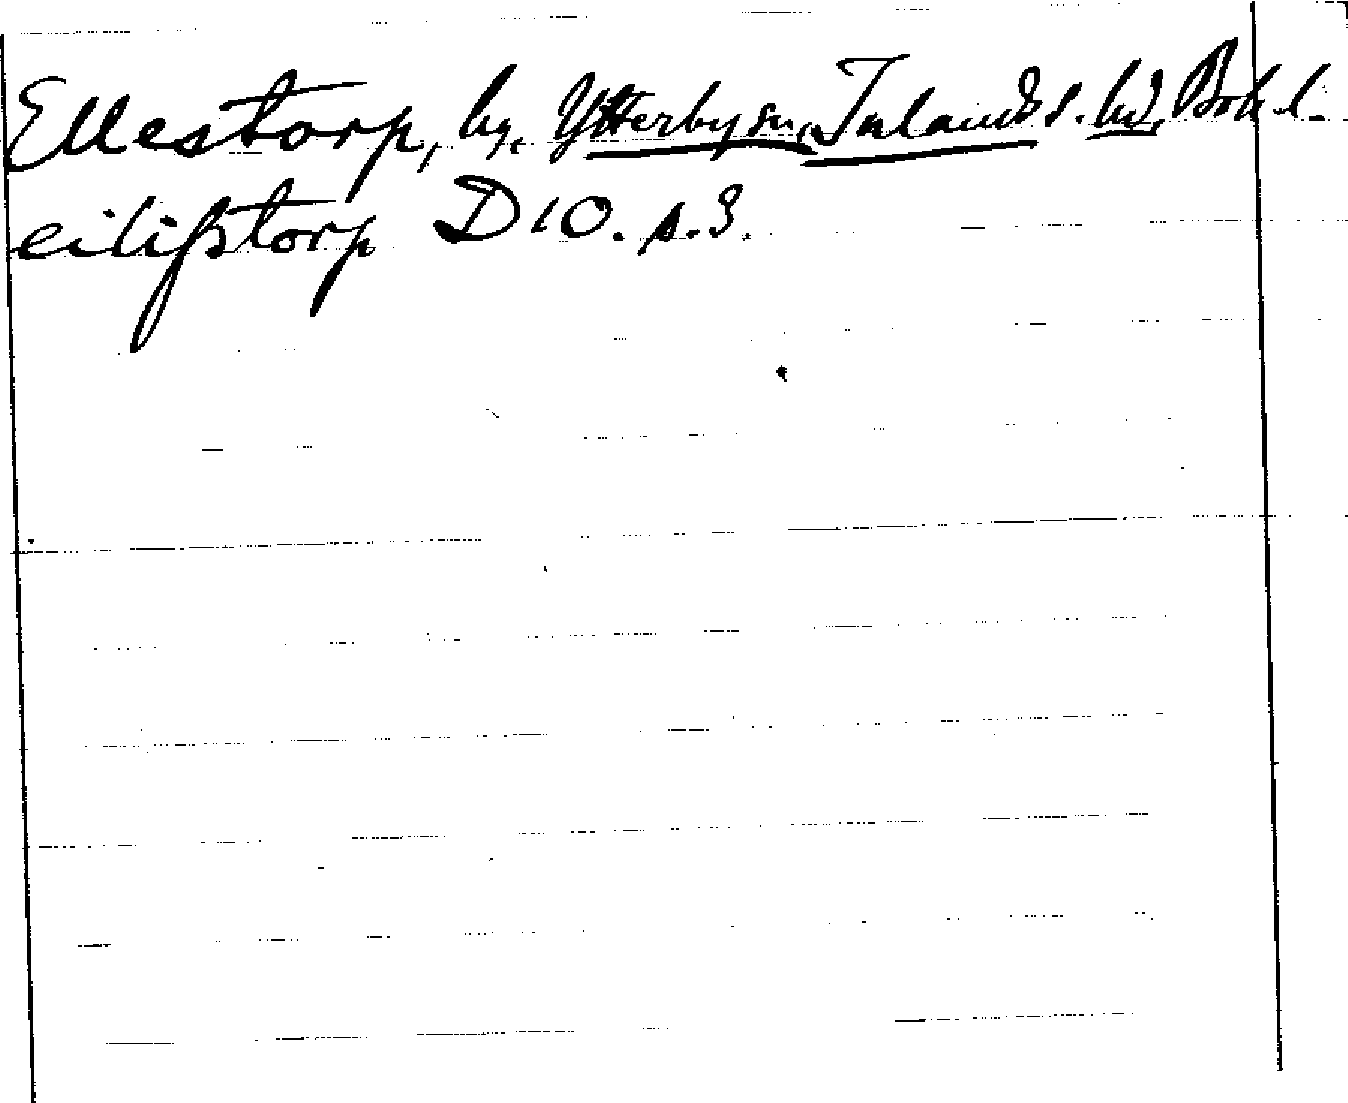 Ellestorp, by, Ytterby sn, Inlands s. hd, Bohl.
eilißtorp D 10. s. 3.